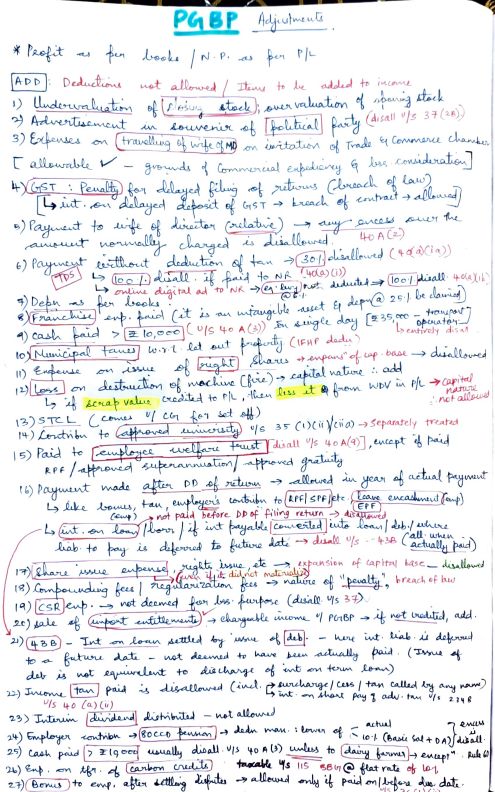 PGBP Adjustments
* Profit as per books / N.P. as per P/L
ADD: Deductions not allowed / Items to be added to income
1) Undervaluation of closing stock; overvaluation of opening stock
2) Advertisement in souvenir of political party (disall u/s 37(2B))
3) Expenses on travelling of wife of MD on invitation of Trade & Commerce chamber
[allowable ✓ - grounds of Commercial expediency & bss consideration]
4) GST: Penalty for delayed filing of returns (breach of law)
[↳ int. on delayed deposit of GST → breach of contract → allowed]
5) Payment to wife of director (relative) → any excess over the
amount normally charged is disallowed. 40A(2)
6) Payment without deduction of tax → 30% disallowed (40(a)(ia))
TDS ↳ 100% disall. if paid to NR (40(a)(i))
↳ online digital ad to NR → eq. levy not deducted → 100% disall 40(a)(ib)
@6%
7) Depn as per books.
8) Franchise exp. paid (it is an intangible asset & depn @ 25% be claimed)
9) cash paid > ₹10,000 (u/s 40A(3)) in single day [₹35,000 - transport operator
→ entirely disall
10) Municipal taxes w.r.t. let out property (IFHP dedn)
11) Expense on issue of right shares → expansn of cap. base → disallowed
12) Loss on destruction of machine (fire) → capital nature ∴ add
↳ if scrap value credited to P/L, then less it from WDV in P/L → capital nature ∴ not allowed
13) STCL (comes u/ CG for set off)
14) Contribn to approved university u/s 35(1)(ii)/(iia) → Separately treated
15) Paid to employee welfare trust [disall u/s 40A(9)], except if paid
RPF/approved superannuation/approved gratuity
16) Payment made after DD of return → allowed in year of actual payment
↳ like bonus, tax, employer's contribn to RPF/SPF/etc. leave encashment (emp)
(emp) → not paid before DD of filing return → disallowed EPF
↳ int. on loan/borr/ if int payable converted into loan/deb./where
liab to pay is deferred to future date → disall u/s - 43B (all. when actually paid)
17) Share issue expense, rights issue, etc → expansion of capital base — disallowed
(even if it did not materialise)
18) Compounding fees/regularization fees → nature of "penalty", breach of law
19) CSR exp. → not deemed for bss. purpose (disall u/s 37)
20) sale of import entitlements → chargeable income u/ PGBP → if not credited, add.
21) 43B - Int on loan settled by issue of deb. - here int. liab. is deferred
to a future date - not deemed to have been actually paid. (Issue of
deb is not equivalent to discharge of int on term loan)
22) Income tax paid is disallowed (incl. → surcharge/cess/tax called by any name)
u/s 40(a)(ii) ↳ int. on short pay of adv. tax u/s 234B
23) Interim dividend distributed - not allowed
24) Employer contribn → 80CCD pension → dedn max.: lower of actual
10% (Basic Sal + DA) excess disall.
25) Cash paid > ₹10,000 usually disall u/s 40A(3) unless to dairy farmer → exceptn. Rule 6D
26) Exp. on tfr. of carbon credits taxable u/s 115 BBG @ flat rate of 10%
27) Bonus to emp. after settling disputes → allowed only if paid on/before due date.